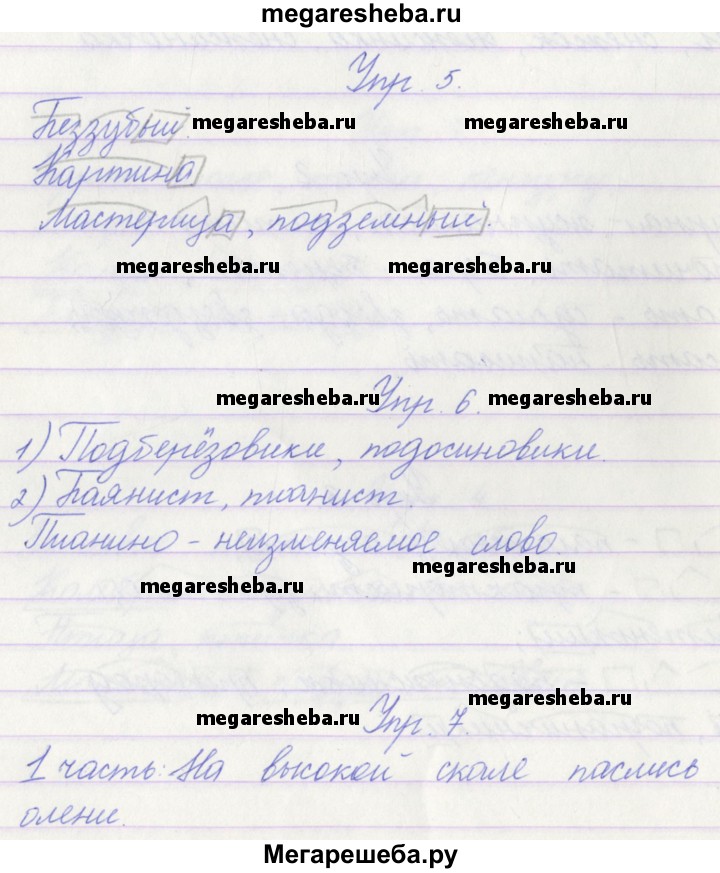 megaresheba.ru
Упр. 5.
Беззубый. megaresheba.ru megaresheba.ru
Картина
Мастерица, подземный.
megaresheba.ru megaresheba.ru
megaresheba.ru Упр. 6. megaresheba.ru
1) Подберёзовики, подосиновики.
2) Баянист, пианист.
Пианино - неизменяемое слово.
megaresheba.ru megaresheba.ru
megaresheba.ru Упр. 7. megaresheba.ru
1 часть: На высокой скале паслись
олени.
Мегарешеба.ру